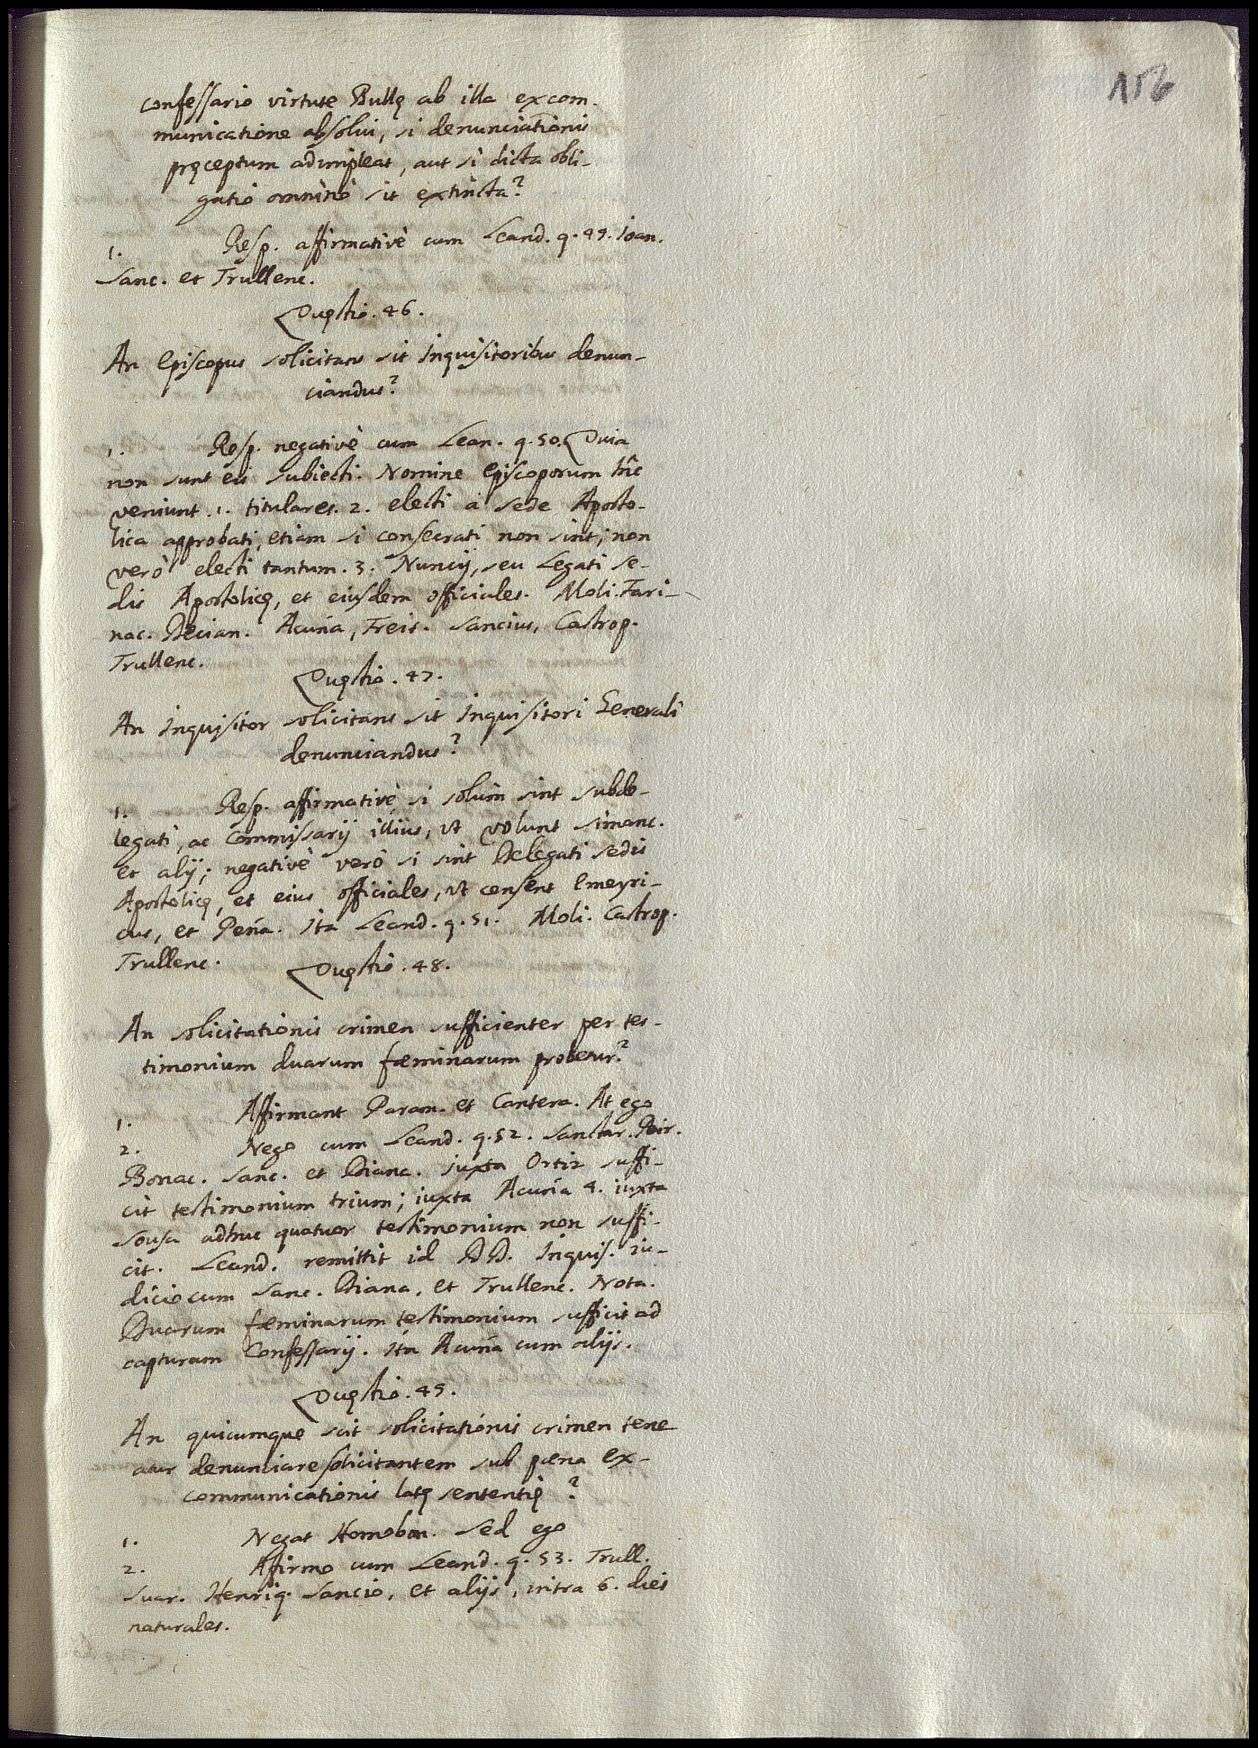 156
confessario virtute Bullę ab illa excom-
municatione absolui, si denunciationis
pręceptum adimpleat, aut si dicta obli-
gatio omninò sit extincta?
1. Resp. affirmativè cum Leand. q. 49. Ioan.
Sanc. et Trullenc.
Quęstio. 46.
An Episcopus solicitans sit Inquisitoribus denun-
ciandus?
1. Resp. negativè cum Lean. q. 50. Quia
non sunt eis subiecti. Nomine Episcoporum hîc
veniunt .1. titulares. 2. electi à sede Aposto-
lica approbati, etiam si consecrati non sint; non
verò electi tantum. 3. Nuncij, seu Legati se-
dis Apostolicę, et eiusdem officiales. Moli. Fari-
nac. Decian. Acuña, Freit. Sancius, Castrop.
Trullenc.
Quęstio. 47.
An Inquisitor solicitans sit Inquisitori Generali
denunciandus?
1. Resp. affirmativè si solùm sint subde-
legati, ac Commissarij illius, vt volunt Simanc.
et alij; negativè verò si sint Delegati sedis
Apostolicę, et eius officiales, vt censent Emeyri-
cus, et Peña. Ita Leand. q. 51. Moli. Castrop.
Trullenc.
Quęstio. 48.
An solicitationis crimen sufficienter per tes-
timonium duarum fœminarum probetur?
1. Affirmant Param. et Cantera. At ego
2. Nego cum Leand. q. 52. Sanctar. Peir.
Bonac. Sanc. et Diana. iuxta Ortiz suffi-
cit testimonium trium; iuxta Acuña 4. iuxta
Sousa adhuc quatuor testimonium non suffi-
cit. Leand. remittit id DD. Inquis. iu-
dicio cum Sanc. Diana, et Trullenc. Nota.
Duarum fœminarum testimonium sufficit ad
capturam Confessarij. Ita Acuña cum alijs.
Quęstio. 49.
An quicumque scit solicitationis crimen tene
atur denunciare solicitantem sub pœna ex-
communicationis latę sententię?
1. Negat Homobon. Sed ego
2. Affirmo cum Leand. q. 53. Trull.
Suar. Henriq. Sancio, et alijs, intra 6. dies
naturales.